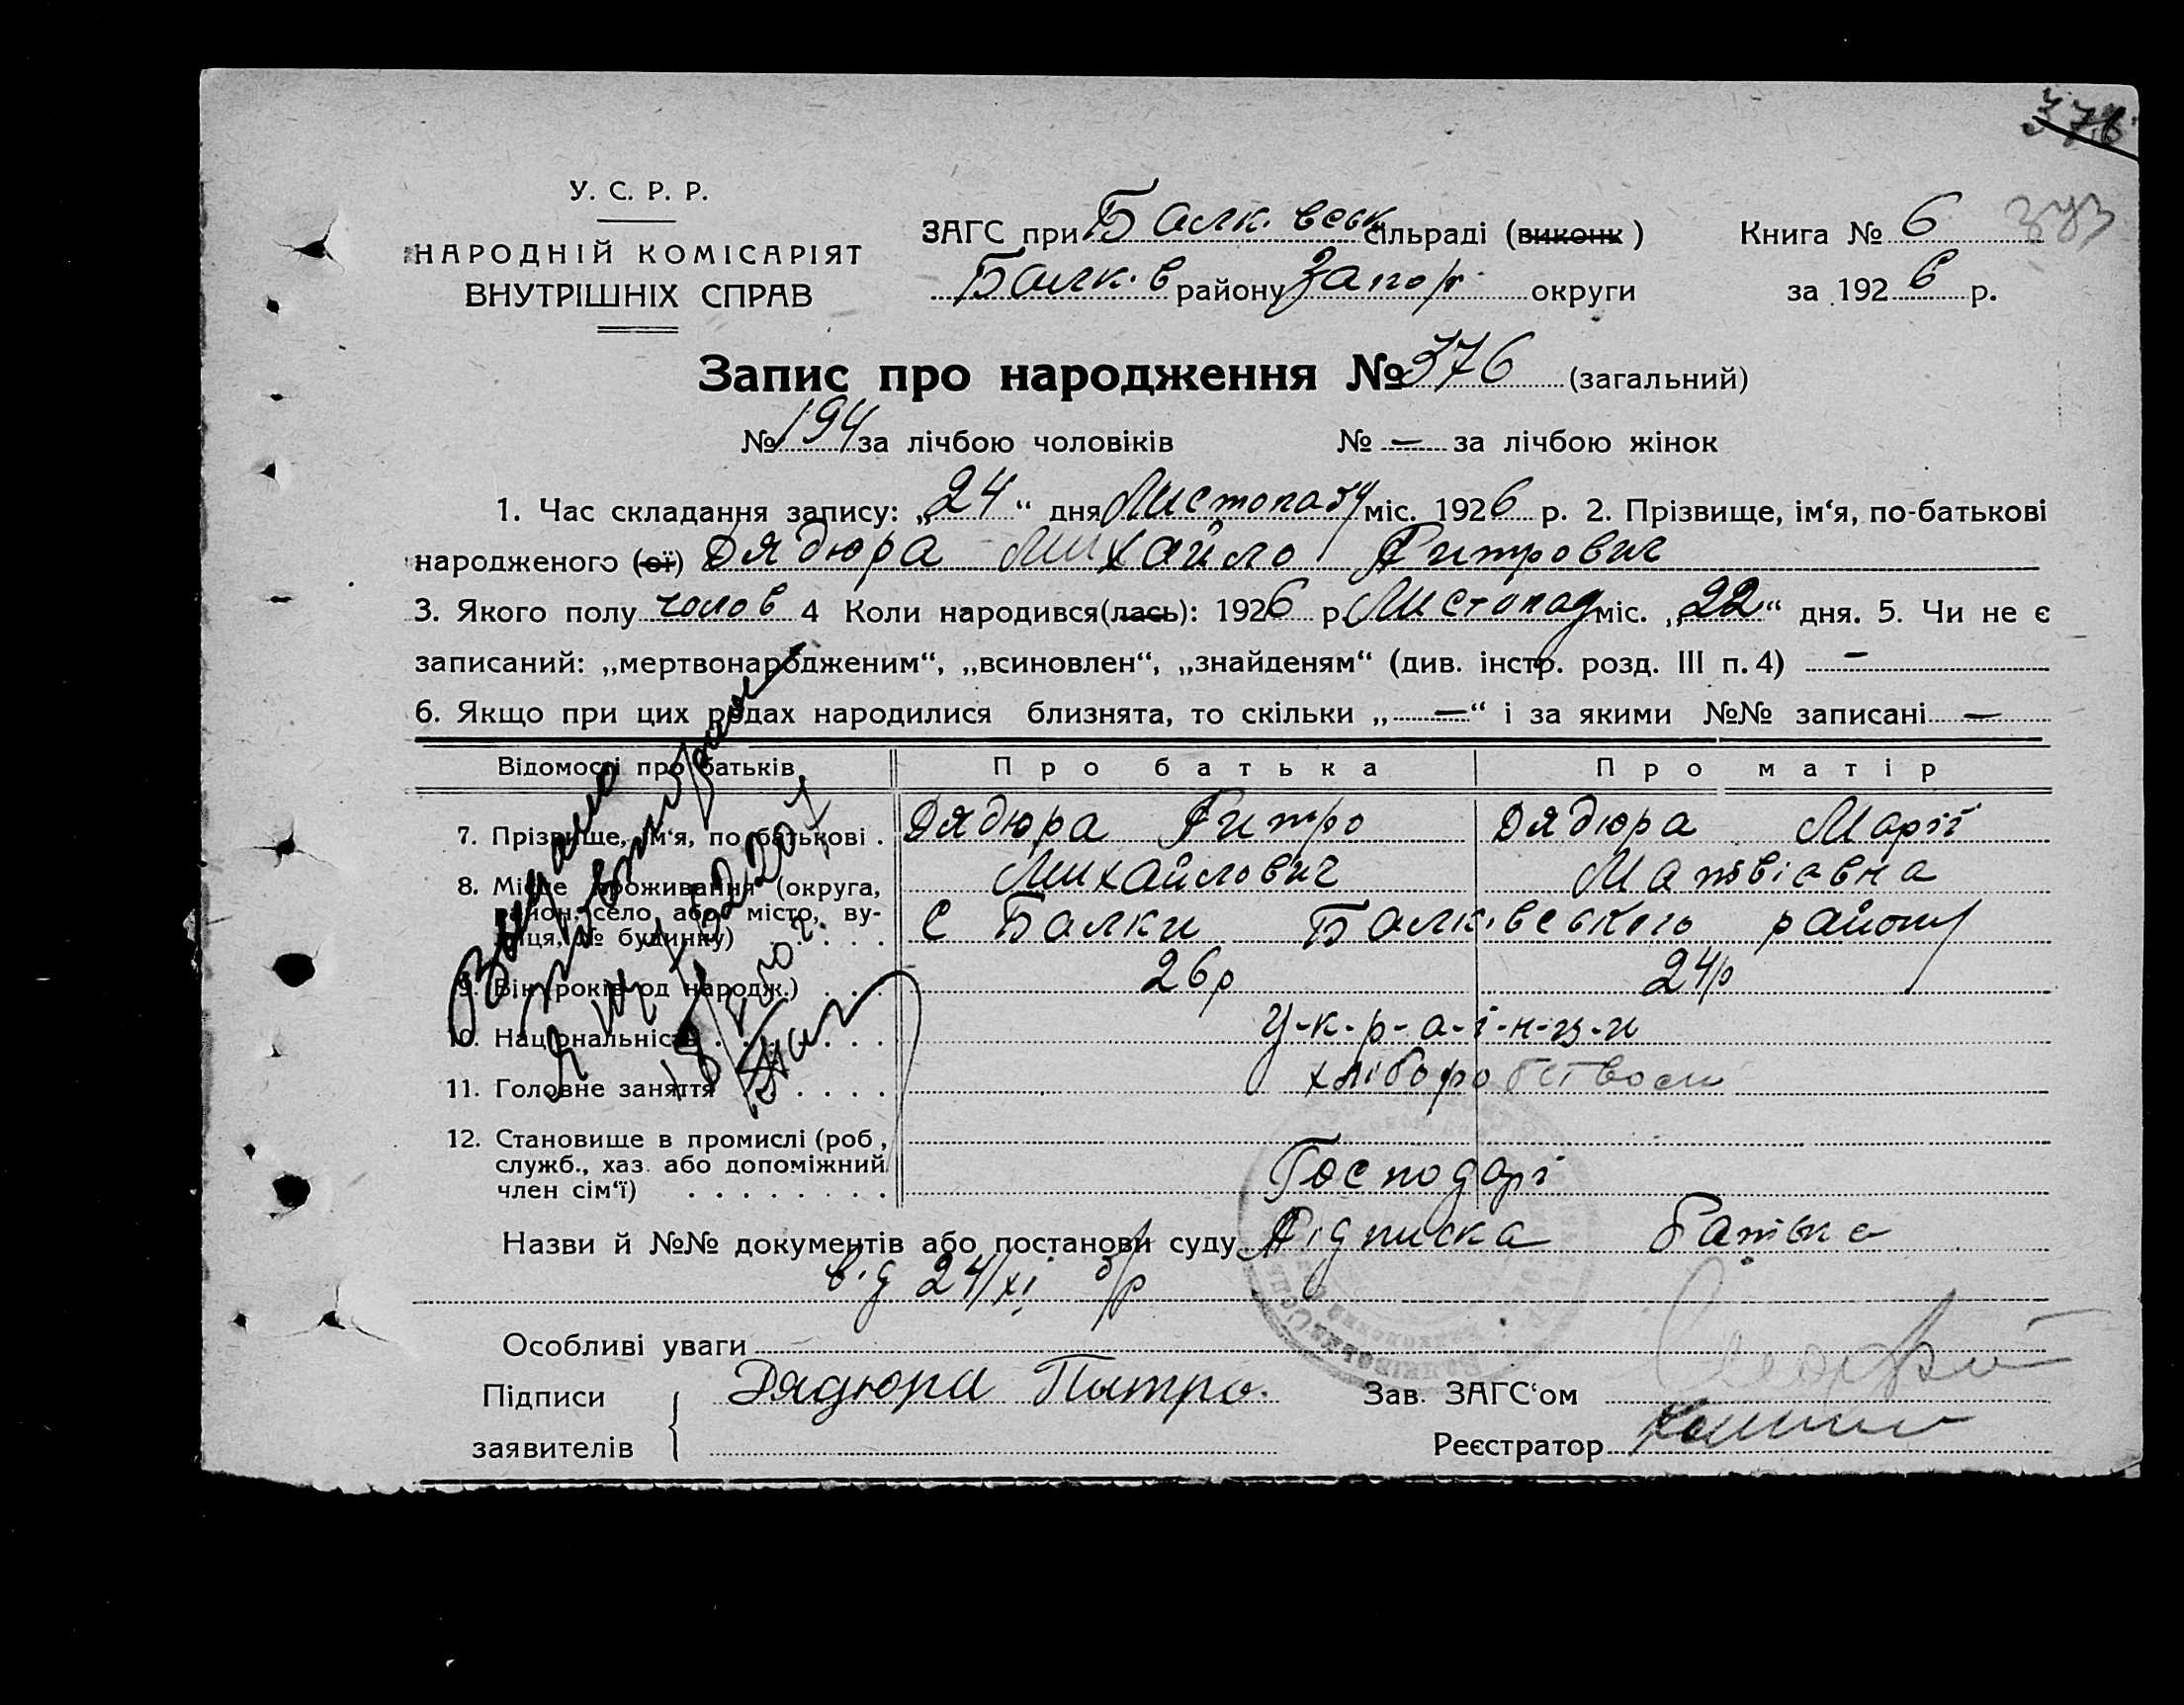 376
У. С. Р. Р.
НАРОДНІЙ КОМІСАРІЯТ
ВНУТРІШНІХ СПРАВ
ЗАГС при Балк. вськ. сільраді (виконк)
Балк. в району Запор. округи
Книга № 6 373
за 1926 р.
Запис про народження № 376 (загальний)
№ 194 за лічбою чоловіків № — за лічбою жінок
1. Час складання запису: „24“ дня Листопаду міс. 1926 р. 2. Прізвище, ім‘я, по-батькові
народженого (ої) Дядюра Михайло Питрович
3. Якого полу чолов 4 Коли народився(лась): 1926 р. Листопад міс. „22“ дня. 5. Чи не є
записаний: „мертвонародженим“, „всиновлен“, „знайденям“ (див. інстр. розд. III п. 4) —
6. Якщо при цих родах народилися близнята, то скільки „—“ і за якими №№ записані —
Відомості про батьків Про батька Про матір
7. Прізвище, ім‘я, по батькові . Дядюра Питро Дядюра Марії
Михайлович Матвіавна
8. Місце проживання (округа, район, село або місто, вулиця, № будинку) С Балки Балк.вського району
9. Вік (років од народж.) . . . 26р 24р
10. Національність . . . . . . У-к-р-а-ї-н-ц-и
11. Головне заняття . . . . . хліборобством
12. Становище в промислі (роб., служб., хаз. або допоміжний член сім‘ї) . . . . . . . . Господарі
Назви й №№ документів або постанови суду Підписка батька
від 24/XI б/р
Особливі уваги
Підписи Дядюра Питро. Зав. ЗАГС‘ом
заявителів Реєстратор